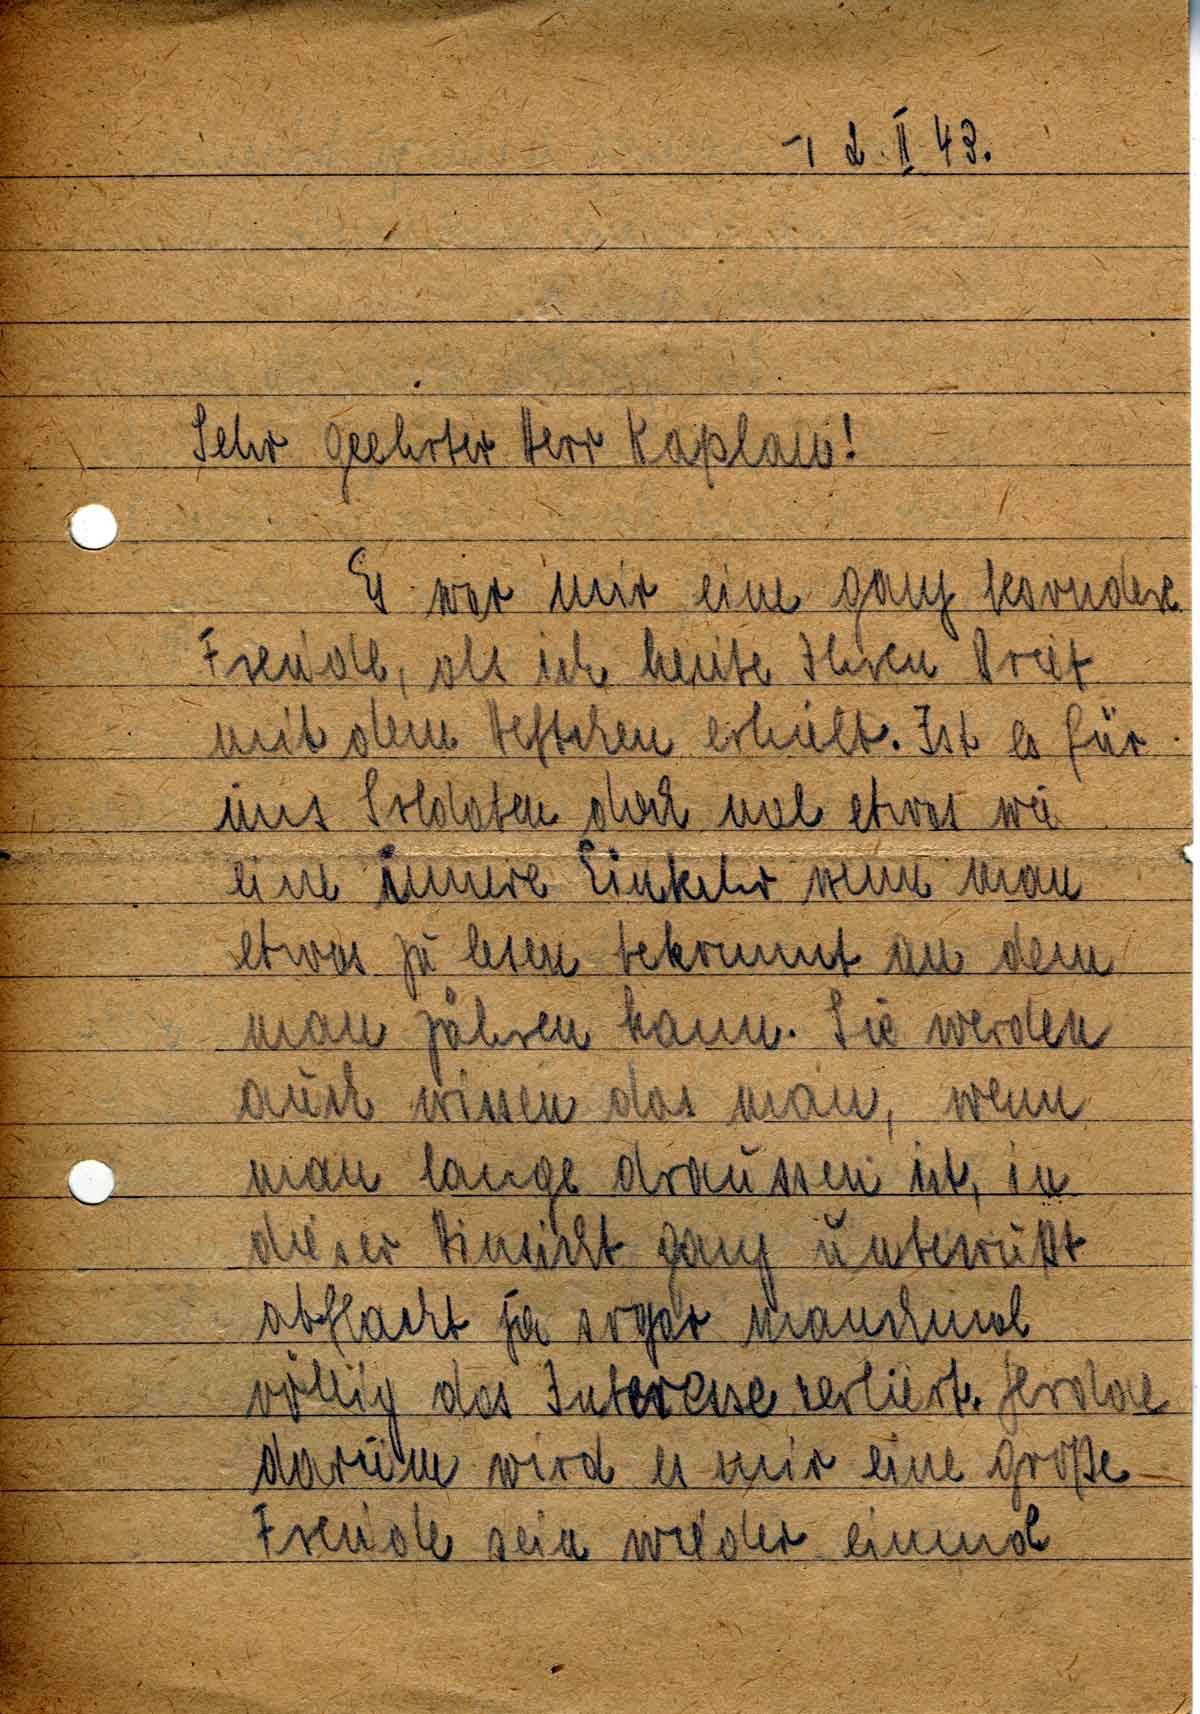 12. II 43.
Sehr geehrter Herr Kaplan!
Es war mir eine ganz besondere
Freude, als ich heute Ihren Brief
mit dem Heftchen erhielt. Ist es für
uns Soldaten doch mal etwas wie
eine innere Einkehr wenn man
etwas zu lesen bekommt an dem
man zähren kann. Sie werden
auch wissen das man, wenn
man lange draussen ist, in
dieser Hinsicht ganz unbewußt
abflacht ja sogar manchmal
völlig das Interesse verliert. Gerade
darum wird es mir eine große
Freude sein wieder einmal